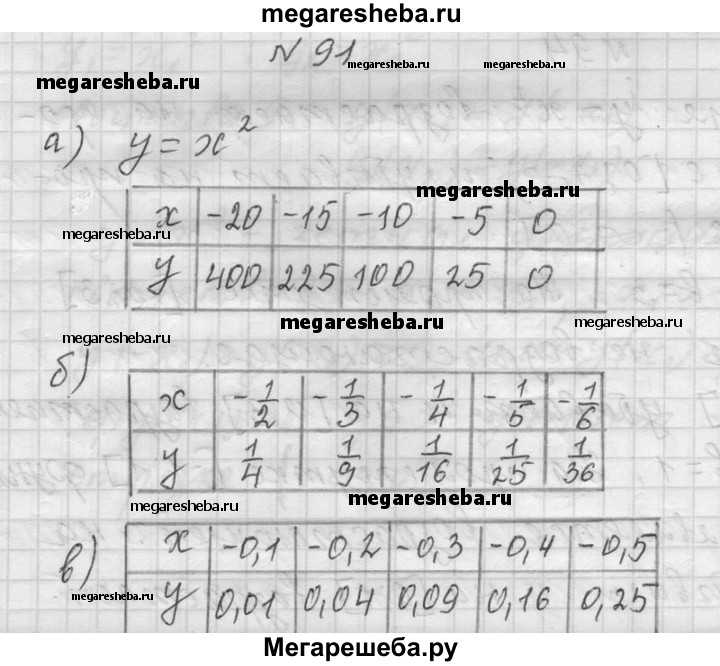 megaresheba.ru
№ 91
megaresheba.ru megaresheba.ru
megaresheba.ru
а) y = x²
megaresheba.ru
x -20 -15 -10 -5 0
megaresheba.ru
y 400 225 100 25 0
megaresheba.ru megaresheba.ru
megaresheba.ru
б)
x -1/2 -1/3 -1/4 -1/5 -1/6
y 1/4 1/9 1/16 1/25 1/36
megaresheba.ru megaresheba.ru
в)
x -0,1 -0,2 -0,3 -0,4 -0,5
megaresheba.ru
y 0,01 0,04 0,09 0,16 0,25
Мегарешеба.ру